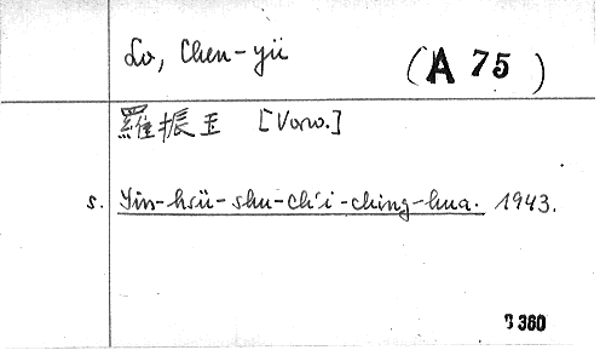 Lo, Chen-yü (A 75)
羅振玉 [Vorw.]
s. Yin-hsü-shu-ch'i-ching-hua. 1943.
360